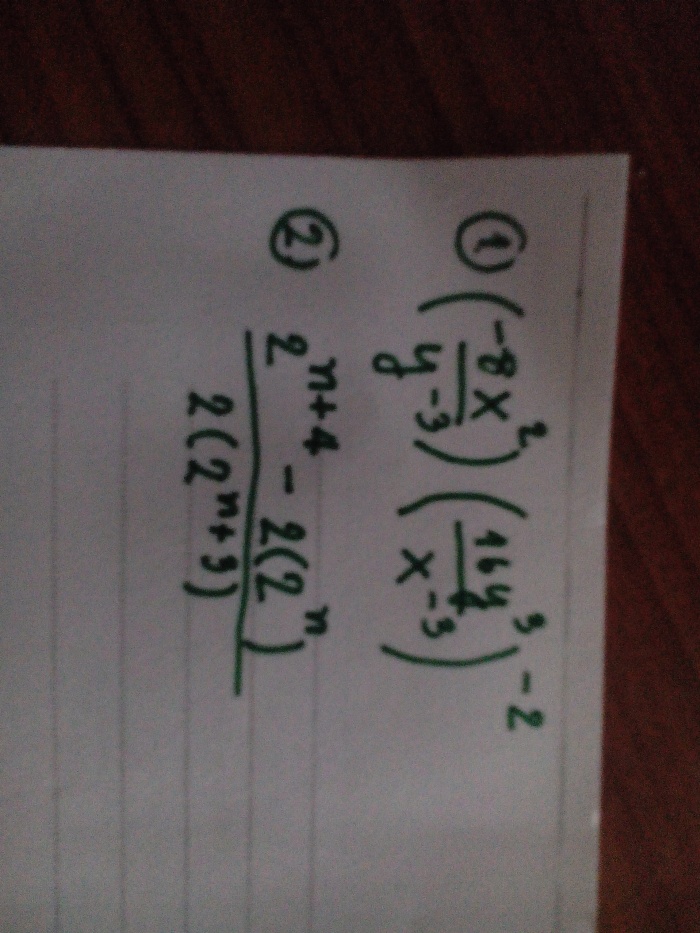 ① (-8x²/y⁻³) (16y³/x⁻³)⁻²
② 2ⁿ⁺⁴ - 2(2ⁿ)
2(2ⁿ⁺³)